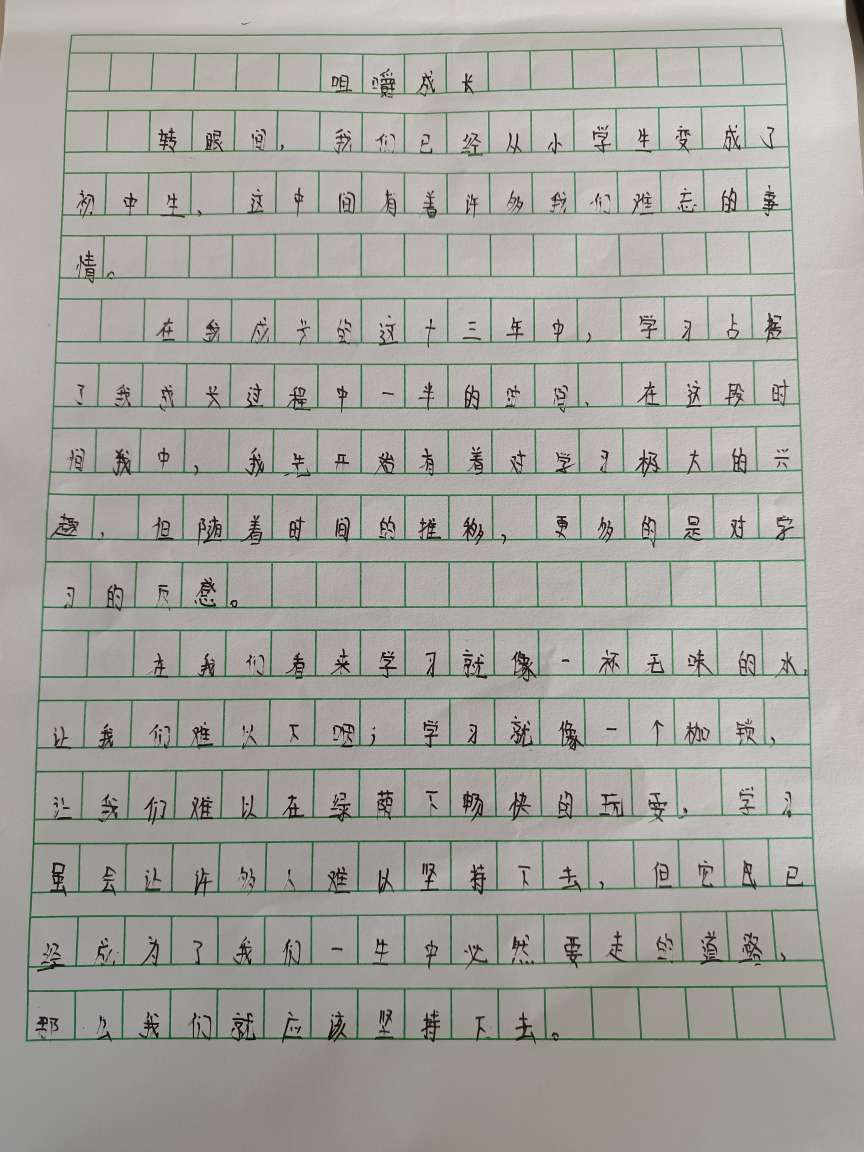 咀嚼成长
转眼间，我们已经从小学生变成了
初中生，这中间有着许多我们难忘的事
情。
在我成长的这十三年中，学习占据
了我成长过程中一半的时间，在这段时
间我中，我先开始有着对学习极大的兴
趣，但随着时间的推移，更多的是对学
习的反感。
在我们看来学习就像一杯无味的水，
让我们难以下咽；学习就像一个枷锁，
让我们难以在绿荫下畅快的玩耍，学习
虽会让许多人难以坚持下去，但它也已
经成为了我们一生中必然要走的道路，
那么我们就应该坚持下去。